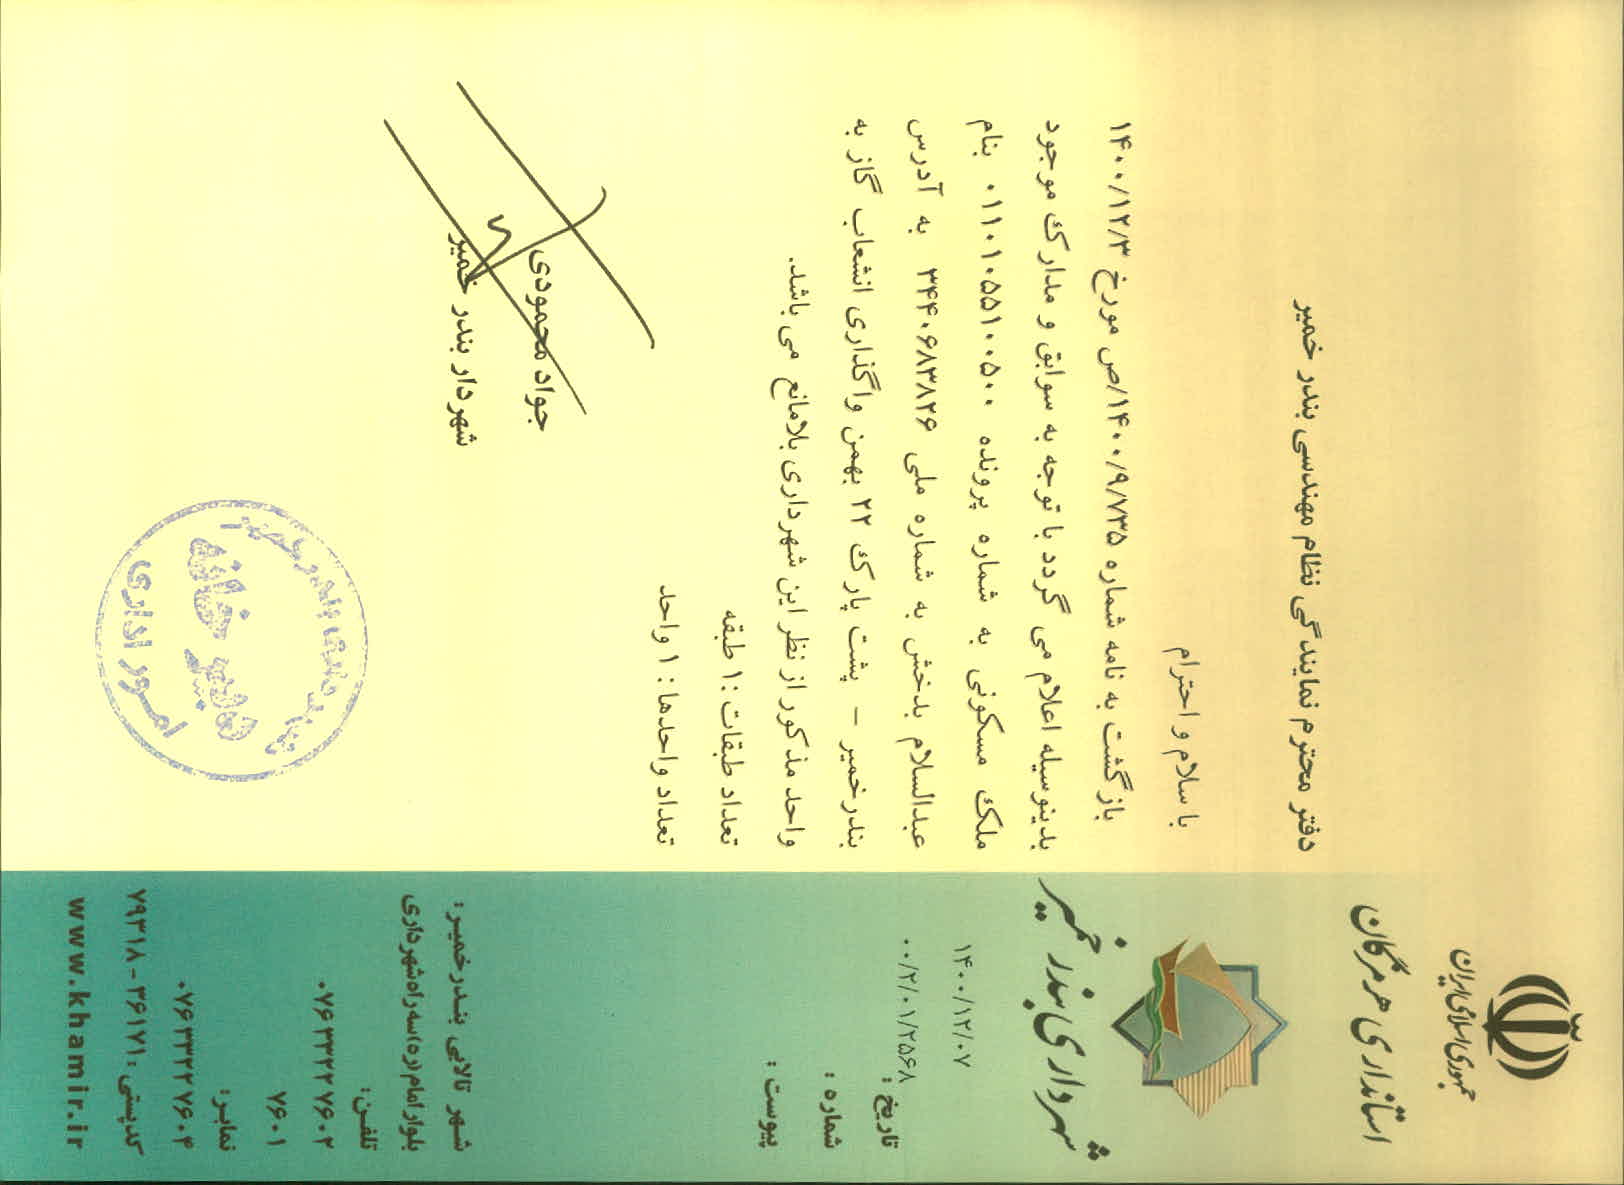 جمهوری اسلامی ایران
استانداری هرمزگان
شهرداری بندر خمیر
۱۴۰۰/۱۲/۰۷
۰۰/۲/۰۱/۲۵۶۸
تاریخ :
شماره :
پیوست :
دفتر محترم نمایندگی نظام مهندسی بندر خمیر
با سلام و احترام
بازگشت به نامه شماره ۱۴۰۰/۹/۷۳۵/ص مورخ ۱۴۰۰/۱۲/۳
بدینوسیله اعلام می گردد با توجه به سوابق و مدارک موجود
ملک مسکونی به شماره پرونده ۰۱۱۰۱۰۵۵۱۰۰۵۰۰ بنام
عبدالسلام بدخش به شماره ملی ۳۴۴۰۶۸۳۸۲۶ به آدرس
بندرخمیر – پشت پارک ۲۲ بهمن واگذاری انشعاب گاز به
واحد مذکور از نظر این شهرداری بلامانع می باشد.
تعداد طبقات : ۱ طبقه
تعداد واحدها : ۱ واحد
جواد محمودی
شهردار بندر خمیر
شهرداری بندر خمیر
دبیرخانه
امور اداری
شهر تالابی بندرخمیر:
بلوار امام (ره) سه راه شهرداری
تلفن:
۰۷۶۳۳۲۲۷۶۰۲
۷۶۰۱
نمابر:
۰۷۶۳۳۲۲۷۶۰۴
کدپستی: ۳۶۱۷۱-۷۹۳۱۸
www.khamir.ir